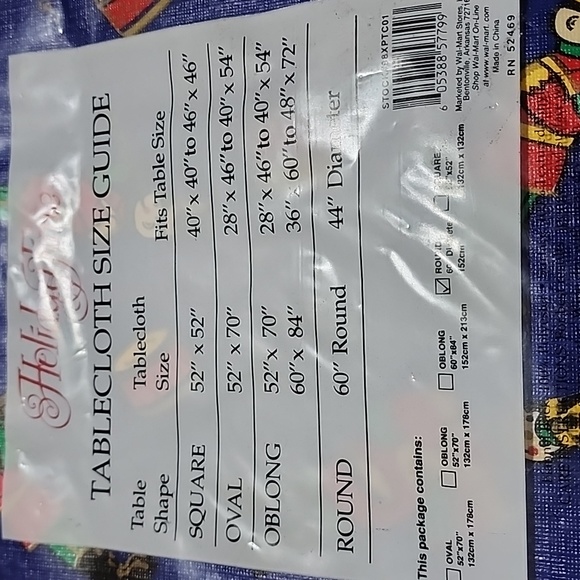 TABLECLOTH SIZE GUIDE
Table Shape Tablecloth Size Fits Table Size
SQUARE 52" x 52" 40" x 40" to 46" x 46"
OVAL 52" x 70" 28" x 46" to 40" x 54"
OBLONG 52" x 70" 28" x 46" to 40" x 54"
60" x 84" 36" x 60" to 48" x 72"
ROUND 60" Round 44" Diameter
This package contains:
OVAL
52"x70"
132cm x 178cm
OBLONG
52"x70"
132cm x 178cm
OBLONG
60"x84"
152cm x 213cm
ROUND
60"
152cm
SQUARE
132cm x 132cm
6 05388 57799
Marketed by Wal-Mart Stores,
Bentonville, Arkansas
Shop Wal-Mart On-Line
at www.wal-mart.com
Made in China
RN 52469